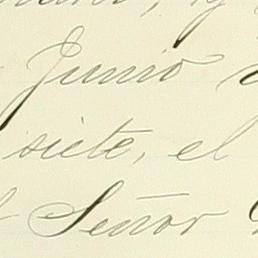 y
Junio
siete, el
Señor